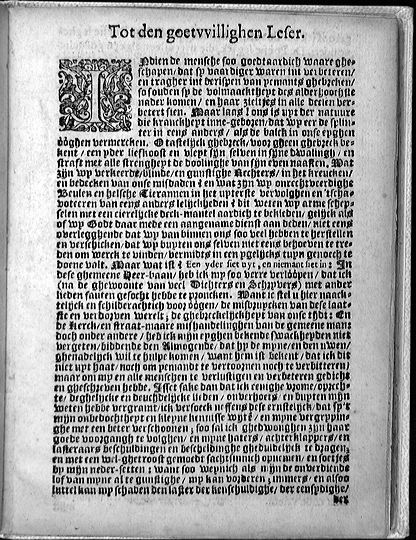 Tot den goetvvillighen Leser.
INdien de mensche soo goedtaardich waare ghe-
schapen/ dat sp vaardiger waren int verbeteren/
en tragher int berispen van pemants ghebreken/
so souden sp de volmaackthept des alderhooghste
nader komen/ en haar zieltjes in alle deelen ver-
betert sien. Maar laas! ons is upt der nature
die kranckhept inne-geboren/ dat wp eer de splin-
ter in eens anders/ als de balck in onse epghen
ooghen vermercken. O lastelijck ghebreck/ voor gheen ghebreck be-
kent/ een pder liefkoost en vlept sijn selven in sijne dwalingh/ en
straft met alle strengheyt de doolinghe van sijn even naasten. Wat
zijn wp verkeerde/ blinde/ en gunstighe Rechters/ in het kreucken/
en bedecken van onse misdaden? en wat zijn wp onrechtveerdighe
Beulen en helsche Tierannen in het upterste vervolghen en 'tscha-
voteren van eens anders lelijckheden? dit weten wp arme schep-
selen met een cierelijcke deck-mantel aardich te bekleden/ gelijck als
of wp Godt daar mede een aangename dienst aan deden/ niet eens
overlegghende dat wp van binnen ons soo veel hebben te herstellen
en verschicken/ dat wp bupten ons selven niet eens behoeven te tre-
den om werck te vinden/ vermidts in een pgelijcks tupn genoch te
doene valt. Maar wat ist? Een yder siet uyt, en niemant siet in: In
dese ghemeene Heer-baan/ heb ick mp soo verre verlóópen/ dat ick
(na de ghewoonte van veel Dichters en Schrpvers) met ander
lieden fauten gesocht hebbe te proncken. Want ic stel u hier naack-
telijck en schilderachtich voor oogen/ de misbrupcken van dese laat-
ste en verdorven werelt; de ghebreckelijckhept van onse tijdt: En
de Kerck/ en straat-maare mishandelinghen van de gemeene man:
doch onder andere/ heb ick mijn epghen bekende swackheden niet
vergeten/ biddende den Almogende/ dat hp de mpne/ en den uwen/
ghenadelijck wil te hulpe komen/ want hem ist bekent/ dat ick dit
niet upt haat/ noch om pemandt te vertoornen noch te verbitteren/
maar om mp en alle menschen te verlustigen en verbeteren gedicht
en gheschreven hebbe. Isset sake dan dat ick eenighe vrome/ oprech-
te/ deghelijcke en deuchdelijcke lieden/ onverhoets/ en bupten mijn
weten hebbe vergramt/ ick versoeck neffens dese ernstelijck/ dat sp't
mijn onbedochthept en kleyne kennisse wyte/ en mpne vergrijpin-
ghe met een beter verschoonen; soo sal ick ghedwonghen zijn haar
goede voorgangh te volghen/ en mpne haters/ achterklappers/ en
lasteraars beschuldinghen en bescheldinghe gheduldelijck te dragen;
en met een wel-gheroost gemoedt sachtsinnich opnemen/ en soetjes
by mijn neder-setten: want soo wepnich als mijn de onverdiende
lof van mpne al te gunstighe/ mp kan vorderen; immers/ en alsoo
luttel kan mp schaden den laster der kenschuldighe/ der eensydighe/
der